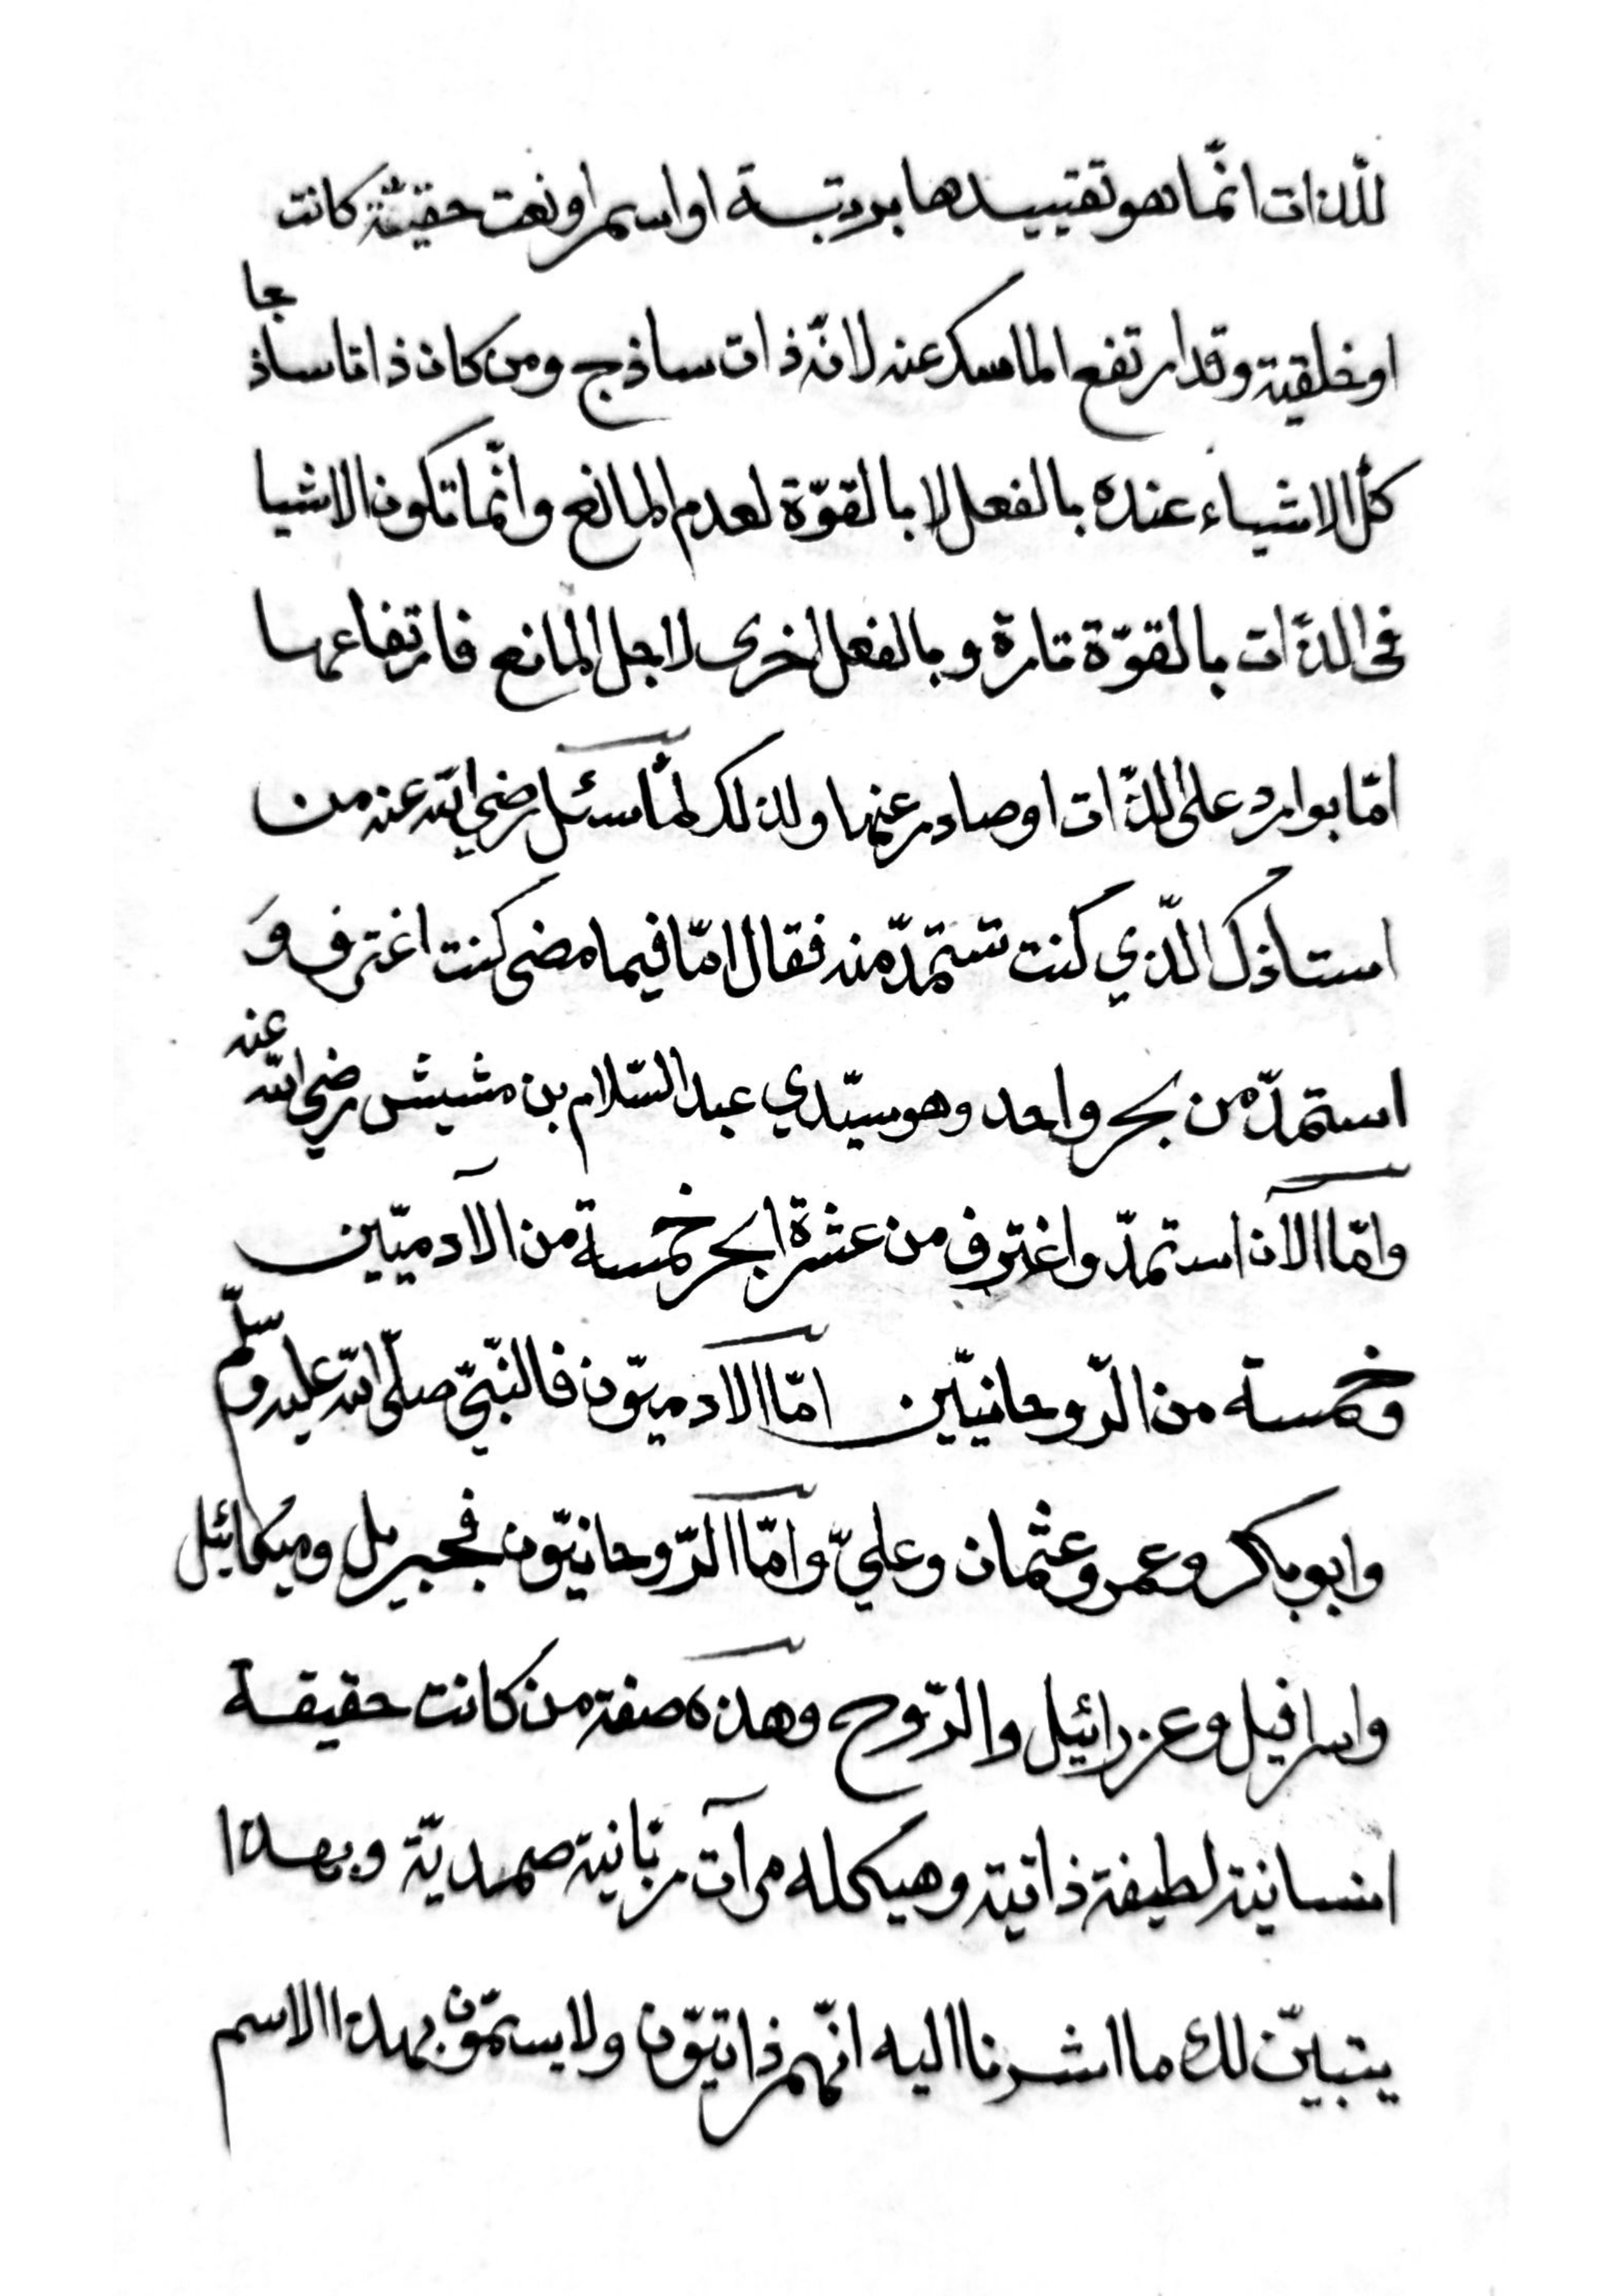 للذّات انّما هو تقييدها برتبة او اسم او نعت حقيّة كانت
او خلقية وقد ارتفع الماسك عنه لانّه ذات ساذج ومن كان ذاتا ساذجا
كلّ الاشياء عنده بالفعل لا بالقوّة لعدم المانع وانّما تكون الاشيا
فى الذّات بالقوّة تارة وبالفعل اخرى لاجل المانع فارتفاعها
امّا بوارد على الذّات او صادر عنها ولذلك لمّا سئل رضي اللّه عنه من
استاذك الّذي كنت تستمدّ منه فقال امّا فيما مضى كنت اغترف وَ
استمدّ من بحر واحد وهو سيّدي عبد السّلام بن مشيش رضي اللّه عنه
وامّا الآن استمدّ واغترف من عشرة ابحر خمسة من الآدميّين
وخمسة من الرّوحانيّين امّا الادميّون فالنّبيّ صلّى اللّه عليه وسلّم
وابو بكر وعمر وعثمان وعليّ وامّا الرّوحانيّون فجبريل وميكائيل
واسرافيل وعزرائيل والرّوح وهذه صفة من كانت حقيقة
انسانية لطيفة ذاتية وهيكله مرآت ربّانية صمديّة وبهذا
يتبيّن لك ما اشرنا اليه انّهم ذاتيّون ولا يسمّون بهذا الاسم